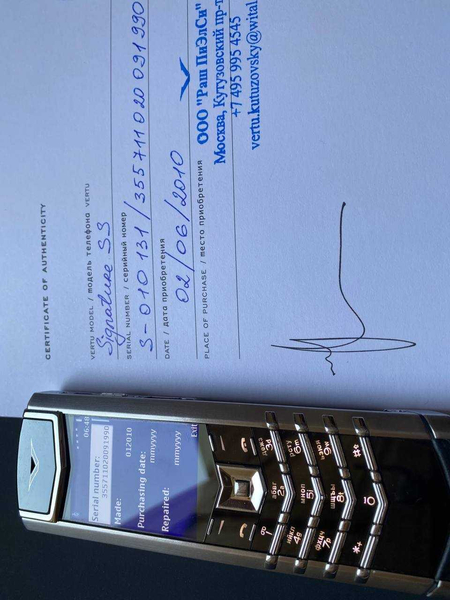 CERTIFICATE OF AUTHENTICITY
VERTU MODEL / модель телефона VERTU
Signature SS
SERIAL NUMBER / серийный номер
S-010131/355711020091990
DATE / дата приобретения
02/06/2010
PLACE OF PURCHASE / место приобретения
ООО "Раш ПиЭлСи"
Москва, Кутузовский пр-т
+7 495 995 4545
vertu.kutuzovsky@wital
06:48
Serial number:
355711020091990
Made:
012010
Purchasing date:
mmyyyy
Repaired:
mmyyyy
Exit
1
абвг 2a
дежз 3d
ийкл 4g
мноп 5j
рсту 6m
фхцч 7p
шщъы 8t
ьэюя 9w
*+
0
#